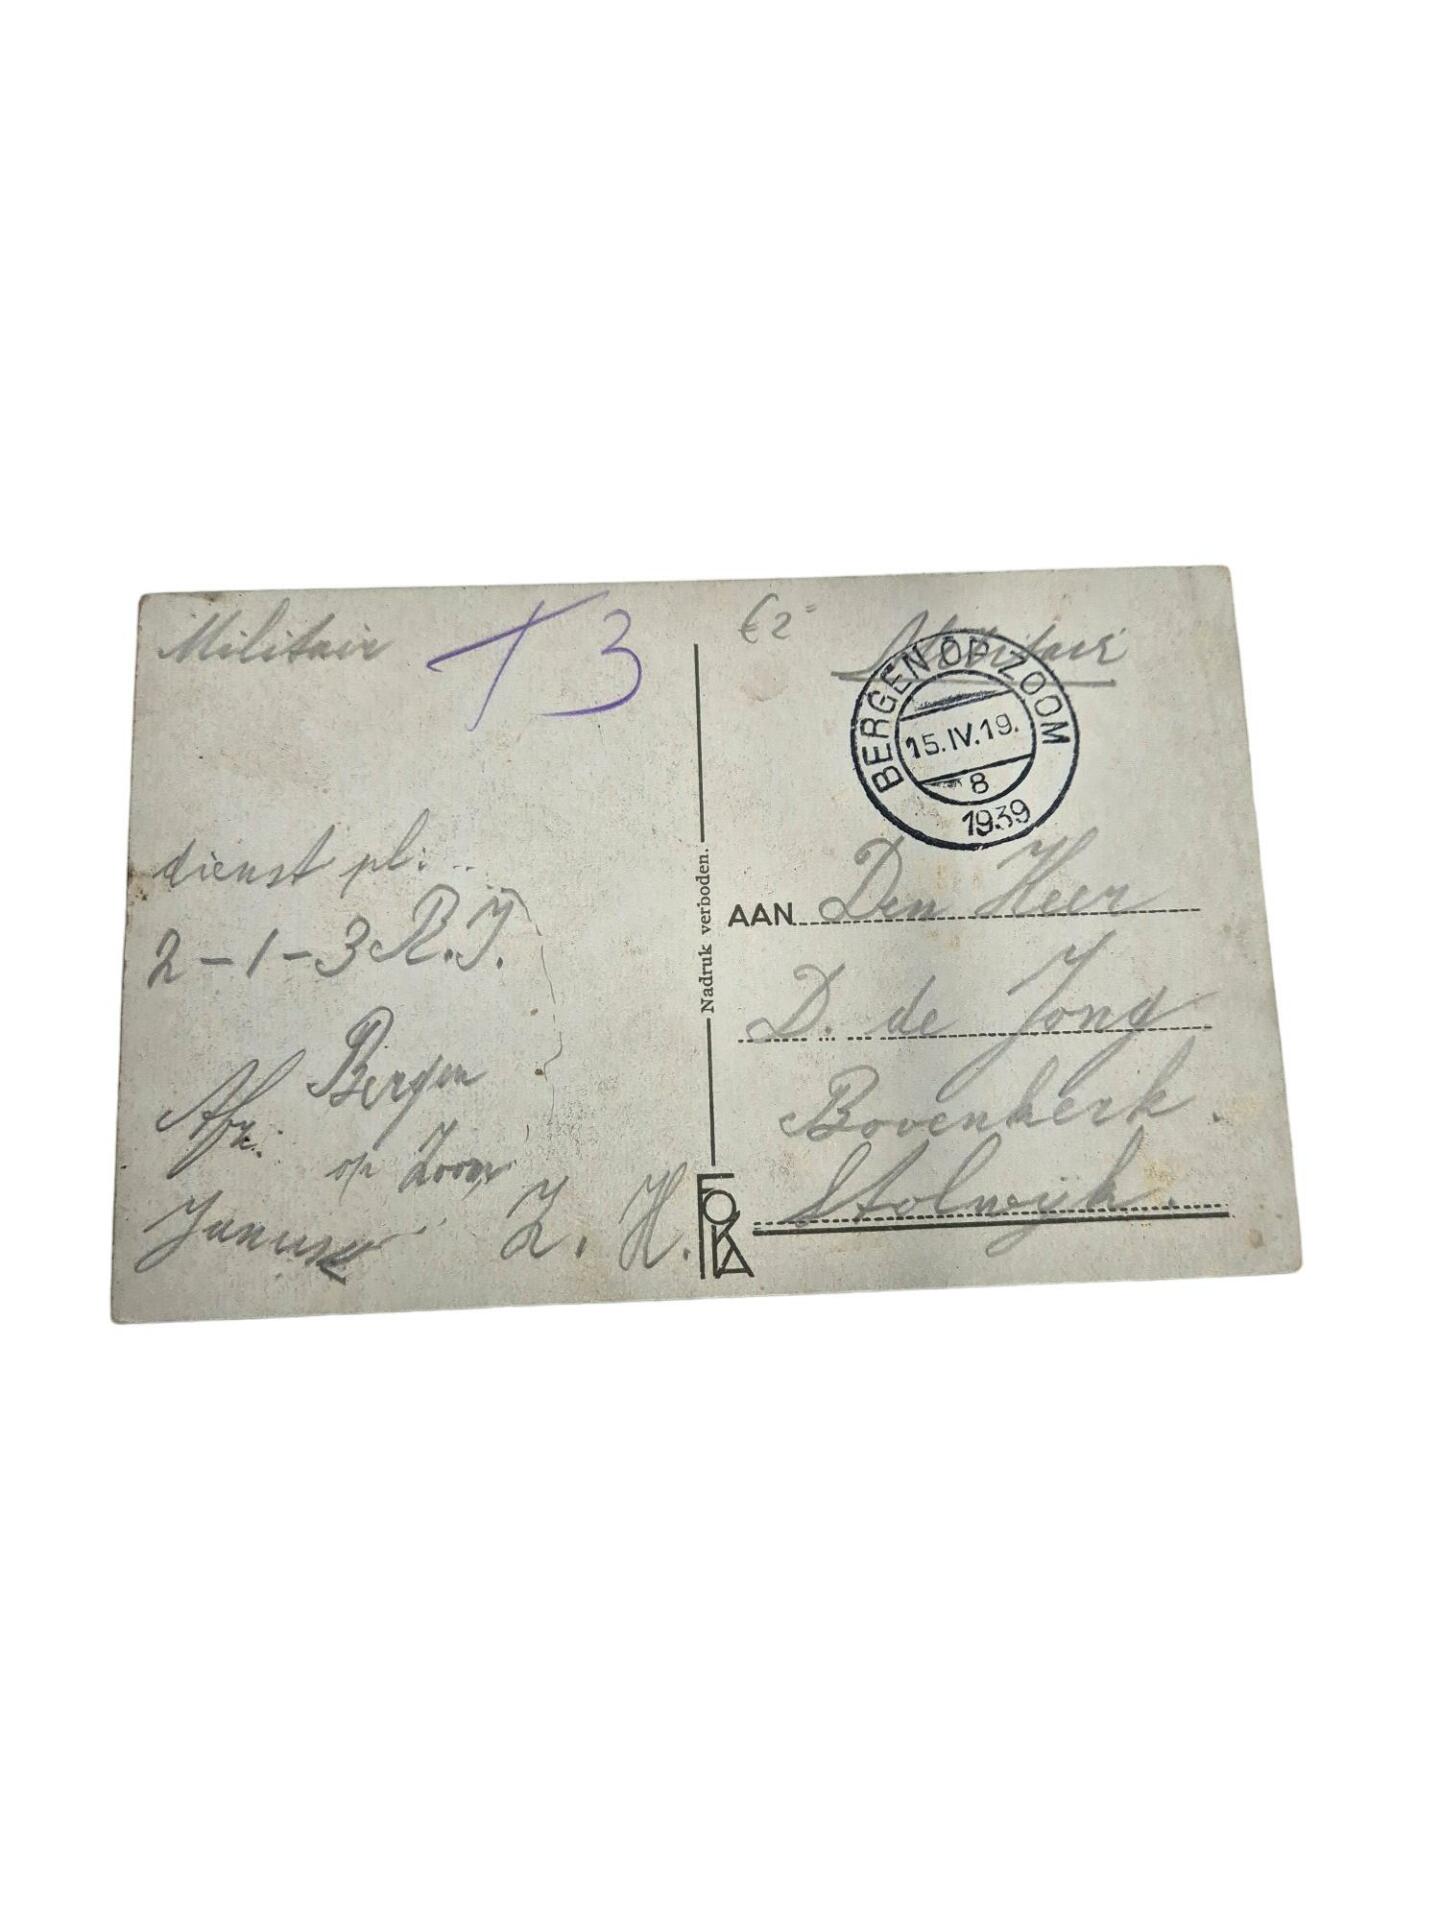 Militair
T3
dienst pl:
2-1-3 R.I.
Bergen
Afz:
op Zoom
Z. H.
Nadruk verboden.
FOKA
€2=
Militair
BERGEN OP ZOOM
15.IV.19.
8
1939
AAN Den Heer
D. de Jong
Bovenkerk
Stolwijk.